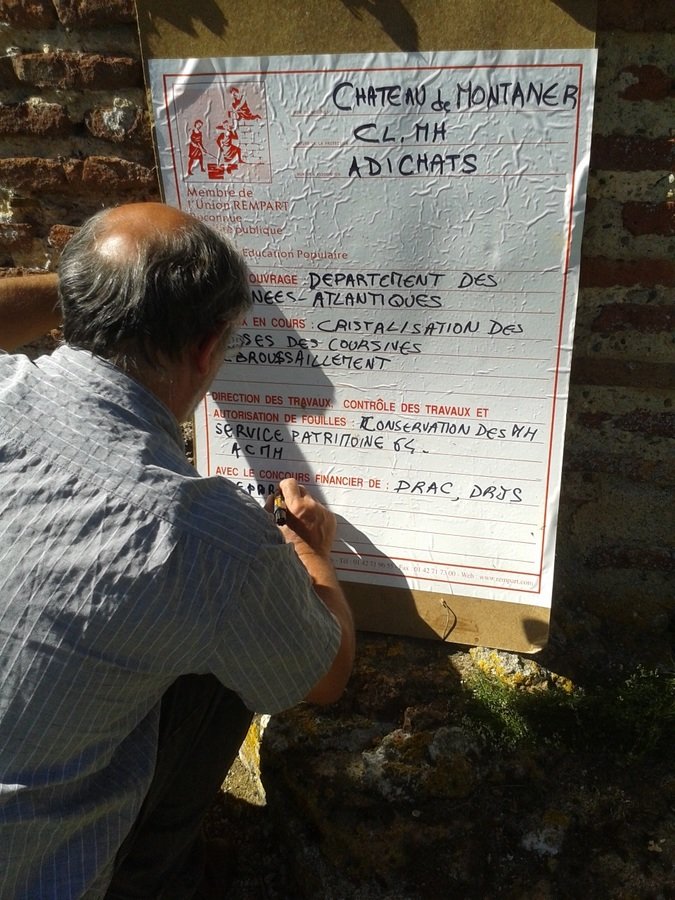 CHATEAU de MONTANER
CL, MH
ADICHATS
Membre de
l'Union REMPART
publique
Education Populaire
OUVRAGE : DEPARTEMENT DES
NEES-ATLANTIQUES
EN COURS : CRISTALISATION DES
DES COURSINES
BROUSSAILLEMENT
DIRECTION DES TRAVAUX, CONTRÔLE DES TRAVAUX ET
AUTORISATION DE FOUILLES : CONSERVATION DES MH
SERVICE PATRIMOINE 64.
ACMH
AVEC LE CONCOURS FINANCIER DE : DRAC, DRJS
EPAR
Tél : 01 42 71 96 55 - Fax : 01 42 71 73 00 - Web : www.rempart.com